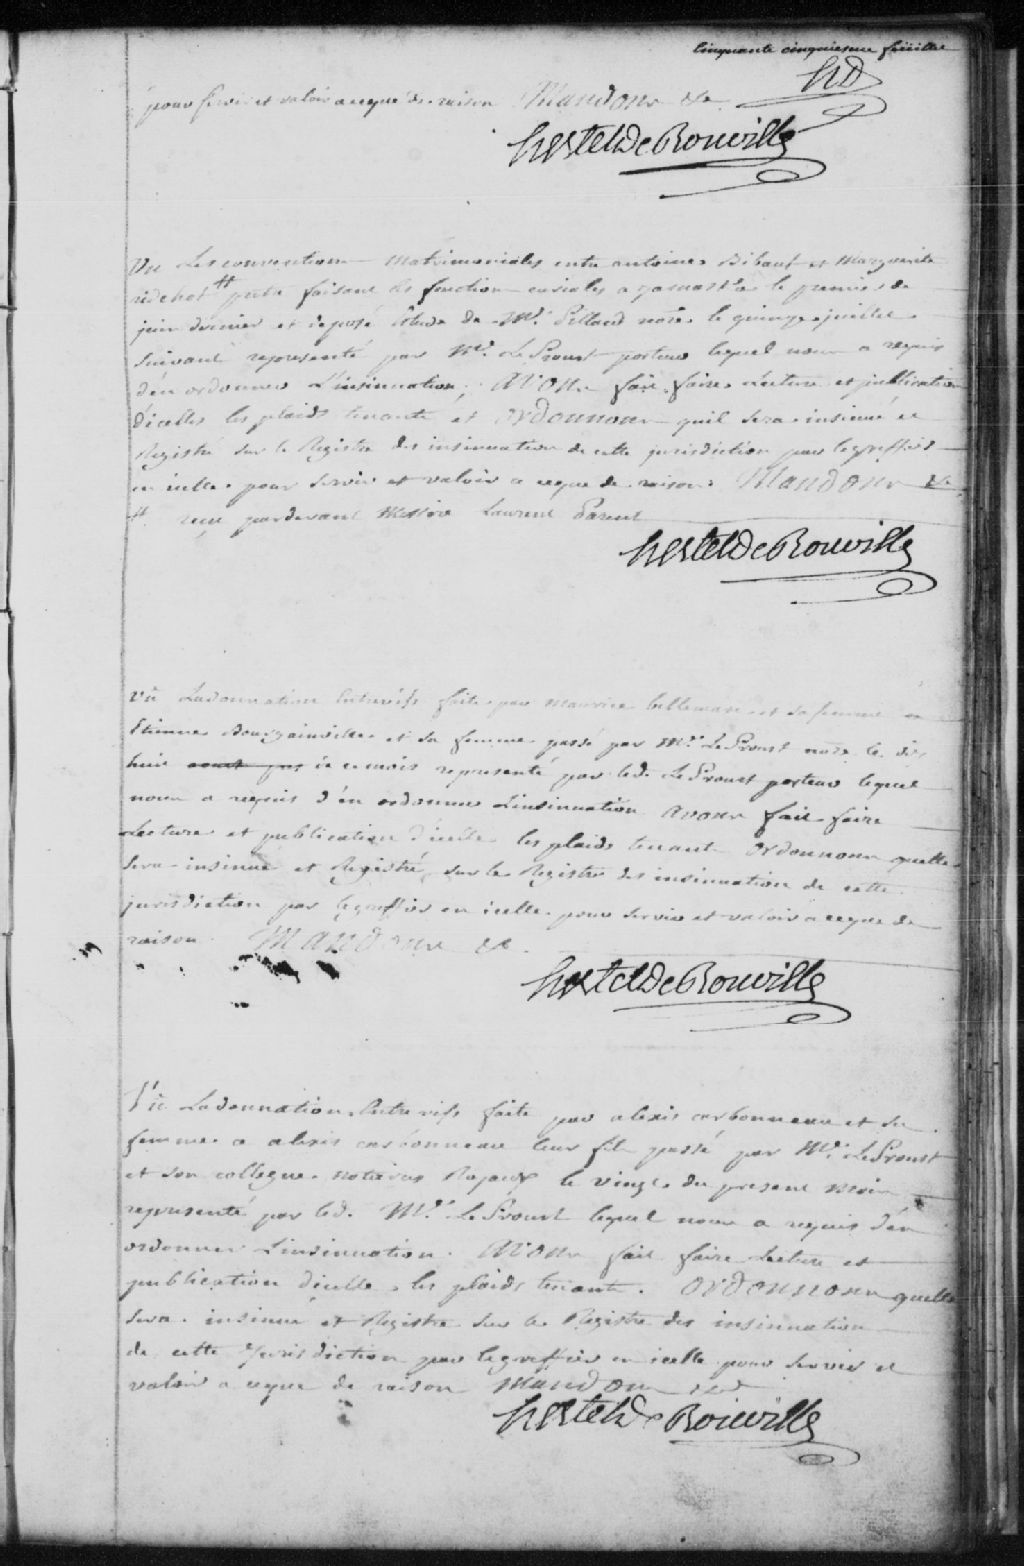 Cinquante cinquieme feüillet
HD
pour servir et valoir a ceque de raison Mandons &c
hertel De Rouville
Vu Les conventions Matrimoniales entre antoine Bibaut et Marguerite
richot # prêtre faisant les fonctions curiales a yamaska le premier de
juin dernier et deposé Etude de Me. Pillard nore. le quinze juillet
suivant representé par Me. LeProust porteur lequel nous a requis
d'en ordonner L'insinuation; avons fait faire lecture et publication
d'icelles les plaids tenants et ordonnons quil sera insinué et
Registré sur le Registre des insinuation de cette jurisdiction par legreffier
en icelle pour servir et valoir a ceque de raison. Mandons &c.
# reçu pardevant Messire Laurent Parent
hertel De Rouville
Vû Ladonnation Entrevifs faite par Maurice bellemare et sa femme a
Etienne Bourgainville et sa femme passé par Me. LeProust nore. le dix
huit de ce mois representé par led. LeProust porteur lequel
nous a requis d'en ordonner Linsinuation avons fait faire
Lecture et publication d'icelle les plaids tenant ordonnons quelle
sera insinué et Registré sur le Registre des insinuation de cette
jurisdiction par legreffier en icelle pour servir et valoir a ceque de
raison. Mandons &c.
hertel De Rouville
Vû Ladonnation Entrevifs faite par alexis carbonneau et sa
femme a alexis carbonneau leur fils passé par Me. LeProust
et son collegue notaires Royaux le vingt du present mois
representé par led. Me. LeProust lequel nous a requis d'en
ordonner Linsinuation. Avons fait faire Lecture et
publication dicelle les plaids tenants. ordonnons quelle
sera insinué et Registré sur le Registre des insinuation
de cette Jurisdiction par legreffier en icelle pour servir et
valoir a ceque de raison Mandons &c
hertel De Rouville